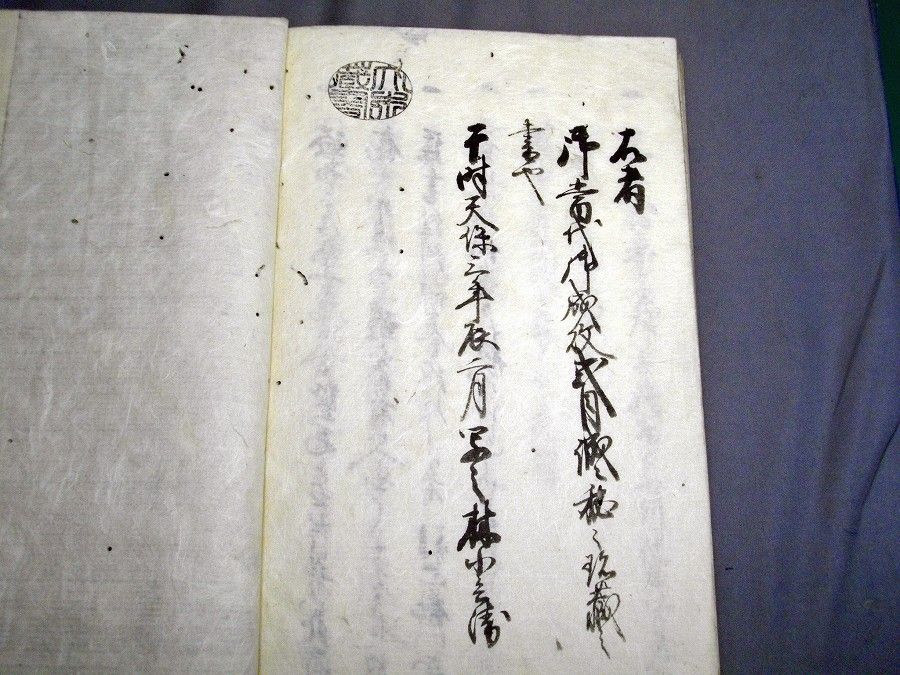 右者
御当代御成敗式目秘之珍蔵之
書也
于時天保三年辰二月写之林小兵衛